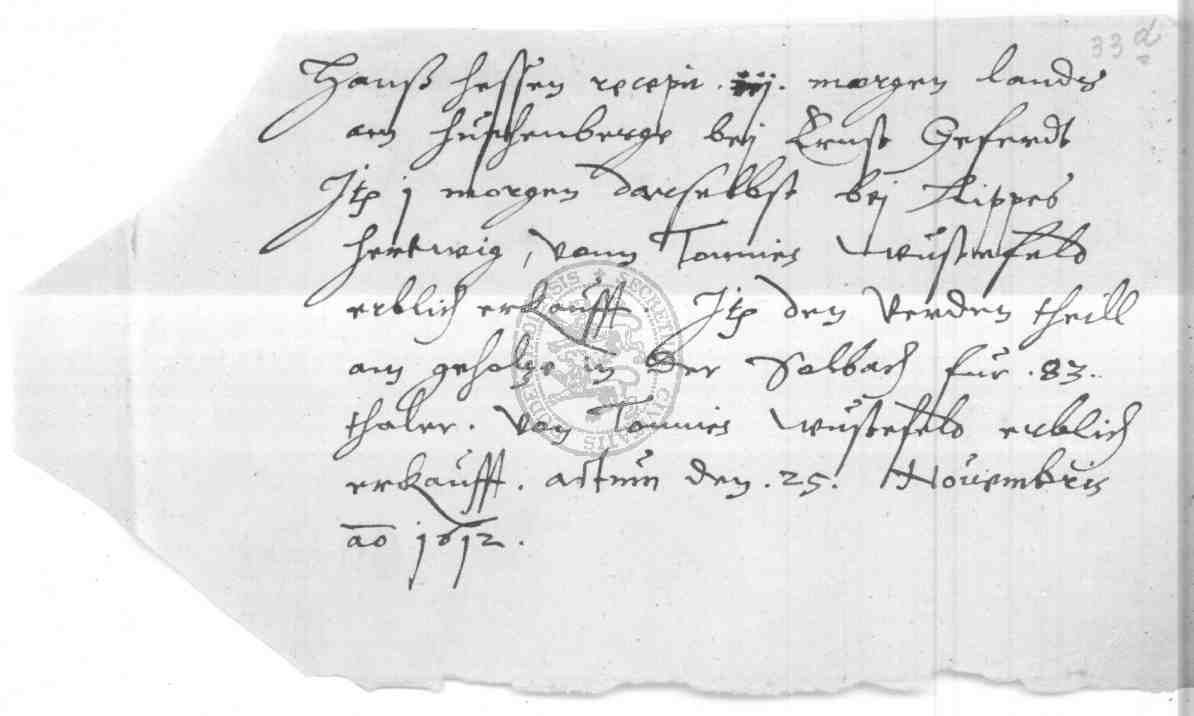 33 d
Hanß Hessen recepit .iij. morgen lands
am huchenberge bej Ernst Geferdt
Itp j morgen darselbst bej Lippes
hertwig, vonn Tonnies Wüstefeld
erblich erkaufft. Itp den Verden theill
am geholze in der Solbach fur .83.
thaler. Von Tonnies Wüstefeld erblich
erkaufft. actum den .25. Novembris
ao 1612.
SECRETUM CIVITATIS